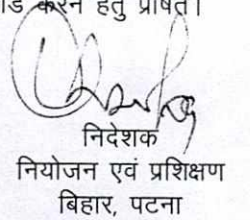 करने हेतु प्रेषित।
निदेशक
नियोजन एवं प्रशिक्षण
बिहार, पटना